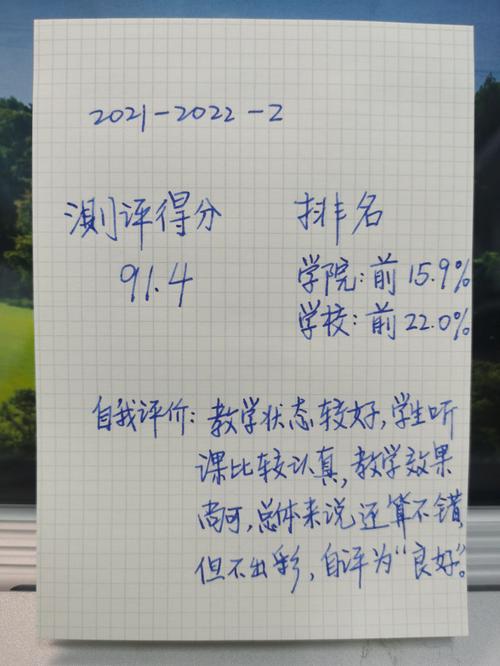 2021-2022-2
测评得分 排名
91.4
学院:前15.9%
学校:前22.0%
自我评价:教学状态较好,学生听
课比较认真,教学效果
尚可,总体来说还算不错,
但不出彩,自评为“良好”。